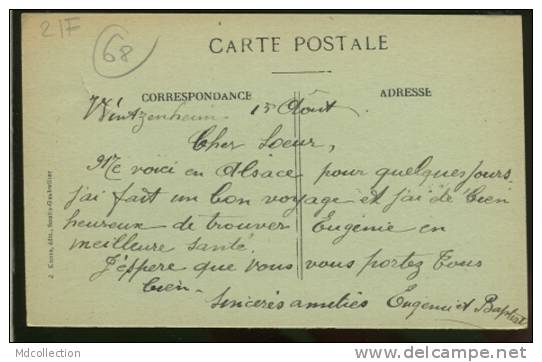 21F
68
CARTE POSTALE
CORRESPONDANCE
ADRESSE
Wintzenheim 15 Août
Cher Soeur,
Me voici en Alsace pour quelques jours
j'ai fait un bon voyage et j'ai été bien
heureux de trouver Eugénie en
meilleure santé.
J'éspere que vous vous portez tous
bien.
Sincères amitiés Eugenie et Baptist
Mdcollection
http://mdcollection.delcampe.net